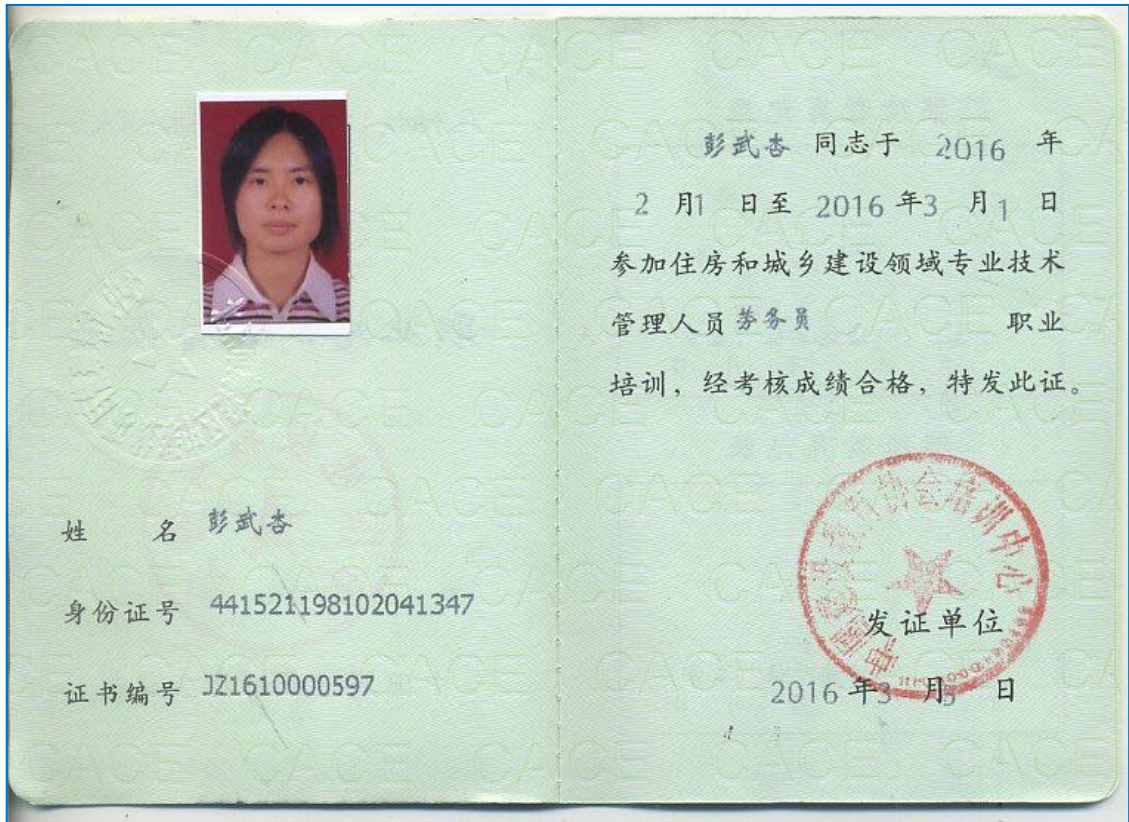 姓 名 彭武杏
身份证号 441521198102041347
证书编号 JZ1610000597
彭武杏 同志于 2016 年
2 月1 日至 2016 年3 月1 日
参加住房和城乡建设领域专业技术
管理人员劳务员 职业
培训，经考核成绩合格，特发此证。
中国建设教育协会培训中心
发证单位
2016 年3 月3 日
CACE